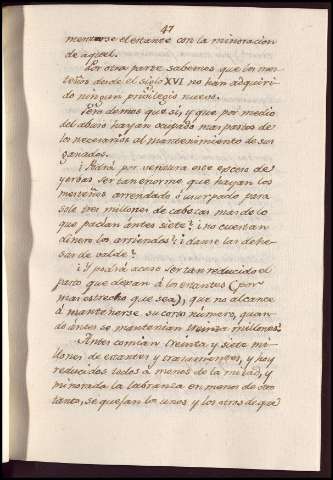 47
mentarse el estante con la minoracion
de aquel.
Por otra parte sabemos que los mes-
teños desde el siglo XVI no han adquiri-
do ningun privilegio nuevo.
Pero demos que sí, y que por medio
del abuso hayan ocupado mas pastos de
los necesarios al mantenimiento de sus
ganados.
¿Podrá por ventura ese exceso de
yerbas ser tan enorme que hayan los
mesteños arrendado ó usurpado para
solo tres millones de cabezas mas de lo
que pacian ántes siete? ¿no cuestan
dinero los arriendos? ¿i danse las dehe-
sas de valde?
¿Y podrá acaso ser tan reducido el
pasto que dexan á los estantes (por
mas estrecho que sea), que no alcance
á mantenerse su corto número, quan-
do ántes se mantenian treinta millones?
Antes comian treinta y siete mi-
llones de estantes y trasumantes, y hoy
reducidos todos á menos de la mitad, y
minorada la labranza en menos de otro
tanto, se quejan los unos y los otros de que